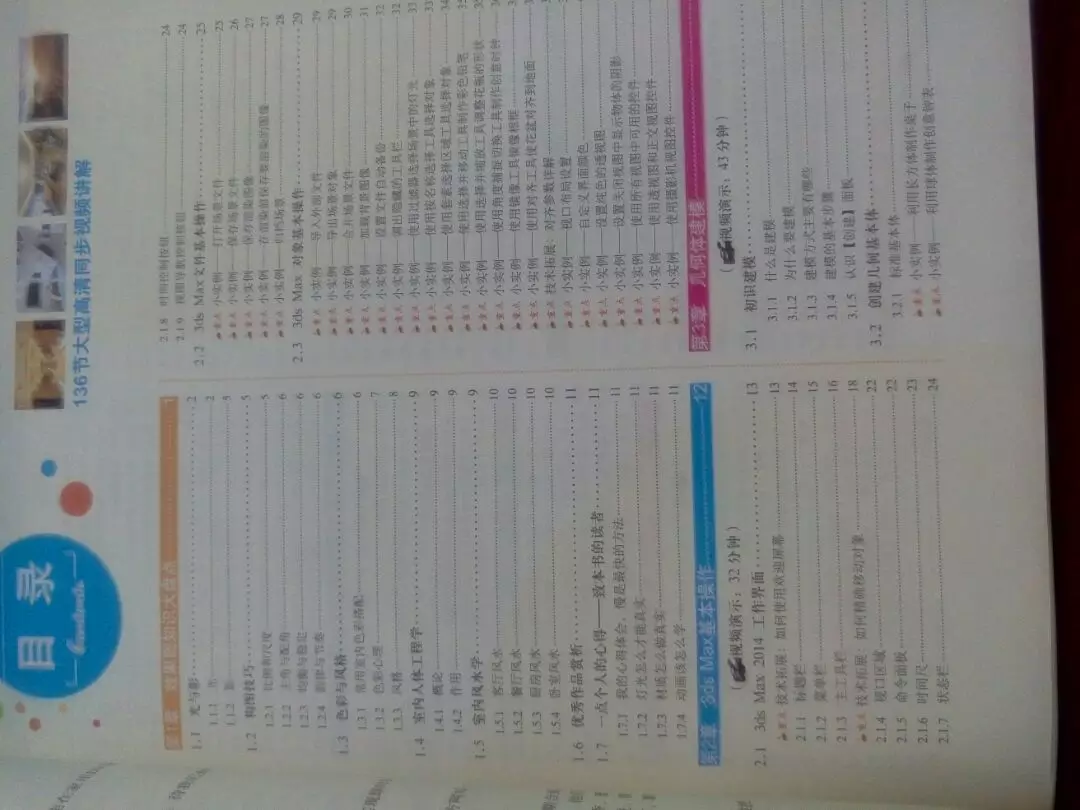 目 录
136节大型高清同步视频讲解
1.1 光与影 2
1.1.1 光 2
1.1.2 影
1.2 构图技巧 5
1.2.1 比例和尺度 5
1.2.2 主角与配角 6
1.2.3 均衡与稳定 6
1.2.4 韵律与节奏 6
1.3 色彩与风格 6
1.3.1 常用室内色彩搭配 6
1.3.2 色彩心理 7
1.3.3 风格 8
1.4 室内人体工程学 9
1.4.1 概论 9
1.4.2 作用 9
1.5 室内风水学 9
1.5.1 客厅风水 10
1.5.2 餐厅风水 10
1.5.3 厨房风水 10
1.5.4 卧室风水 10
1.6 优秀作品赏析 11
1.7 一点个人的心得——致本书的读者 11
1.7.1 我的心得体会，慢是最快的方法 11
1.7.2 灯光怎么才能真实 11
1.7.3 材质怎么做真实 11
1.7.4 动画该怎么学 11
第2章 3ds Max基本操作 12
（视频演示：32 分钟）
2.1 3ds Max 2014 工作界面 13
重点 技术拓展：如何使用欢迎屏幕 13
2.1.1 标题栏 14
2.1.2 菜单栏 15
2.1.3 主工具栏 16
重点 技术拓展：如何精确移动对象 18
2.1.4 视口区域 22
2.1.5 命令面板 22
2.1.6 时间尺 23
2.1.7 状态栏 24
2.1.8 时间控制按钮 24
2.1.9 视图导航控制按钮 24
2.2 3ds Max 文件基本操作 25
重点 小实例——打开场景文件 25
重点 小实例——保存场景文件 26
重点 小实例——保存渲染图像 27
重点 小实例——在渲染前保存要渲染的图像 27
重点 小实例——归档场景 28
2.3 3ds Max 对象基本操作 29
重点 小实例——导入外部文件 29
重点 小实例——导出场景对象 29
重点 小实例——合并场景文件 30
重点 小实例——加载背景图像 31
重点 小实例——设置文件自动备份 32
重点 小实例——调出隐藏的工具栏 32
重点 小实例——使用过滤器选择场景中的灯光 33
重点 小实例——使用按名称选择工具选择对象 33
重点 小实例——使用套索选择区域工具选择对象 34
重点 小实例——使用选择并移动工具制作彩色铅笔
重点 小实例——使用选择并缩放工具调整花瓶的形状
重点 小实例——使用角度捕捉切换工具制作创意时钟
重点 小实例——使用镜像工具镜像相框
重点 小实例——使用对齐工具使花盆对齐到地面
重点 技术拓展：对齐参数详解
重点 小实例——视口布局设置
重点 小实例——自定义界面颜色
重点 小实例——设置纯色的透视图
重点 小实例——设置关闭视图中显示物体的阴影
重点 小实例——使用所有视图中可用的控件
重点 小实例——使用透视图和正交视图控件
重点 小实例——使用摄影机视图控件
第3章 几何体建模
（视频演示：43 分钟）
3.1 初识建模
3.1.1 什么是建模
3.1.2 为什么要建模
3.1.3 建模方式主要有哪些
3.1.4 建模的基本步骤
3.1.5 认识【创建】面板
3.2 创建几何基本体
3.2.1 标准基本体
重点 小实例——利用长方体制作桌子
重点 小实例——利用球体制作创意钟表